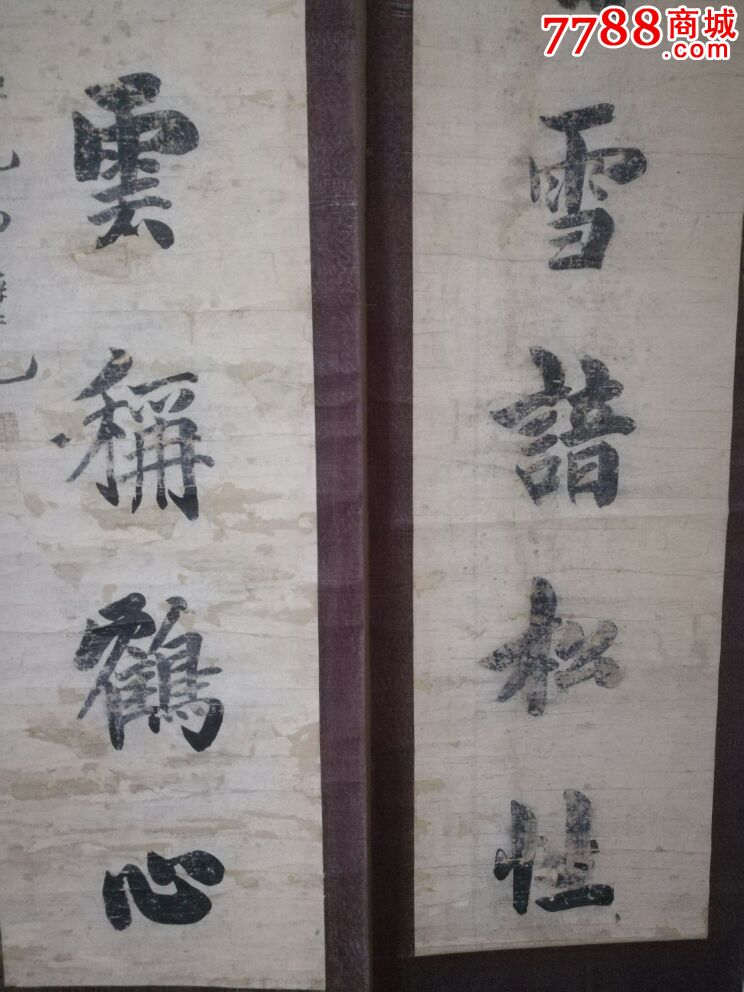 7788商城
.com
雪諳松性
雲稱鶴心